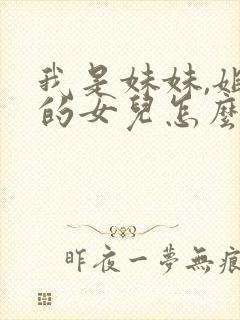 我是妹妹,姐
的女兒怎麼
昨夜一夢無痕